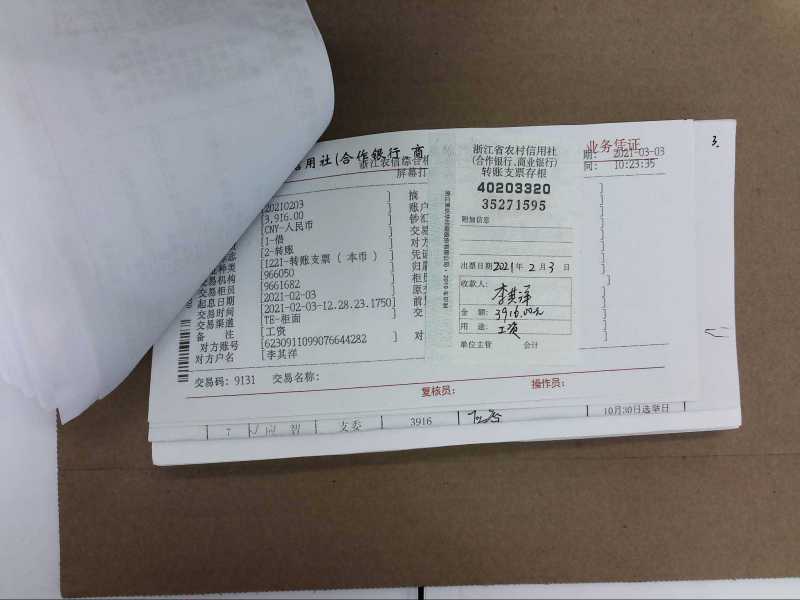 信用社(合作银行、商
浙江农信综合
屏幕打
业务凭证
期: 2021-03-03
间: 10:23:35
3.
[20210203 ] 摘
[3,916.00 ] 账户
[CNY-人民币 ] 钞汇
[1-借 ] 交易
[2-转账 ] 对方
种类 [1221-转账支票(本币) ] 凭证
交易机构 [966050 ] 归属
交易柜员 [9661682 ] 柜员
起息日期 [2021-02-03 ]
交易时间 [2021-02-03-12.28.23.1750] 前
交易渠道 [TE-柜面 ] 交
备 注 [工资 ]
对方账号 [6230911099076644282 ] 对
对方户名 [李其洋 ]
交易码: 9131 交易名称:
复核员: 操作员:
浙江省农村信用社
(合作银行、商业银行)
转账支票存根
40203320
35271595
附加信息
出票日期 2021年 2月 3日
收款人:
李其洋
金 额: 3916.00元
用 途: 工资
单位主管 会计
7 支委 3916 10月30日选举日